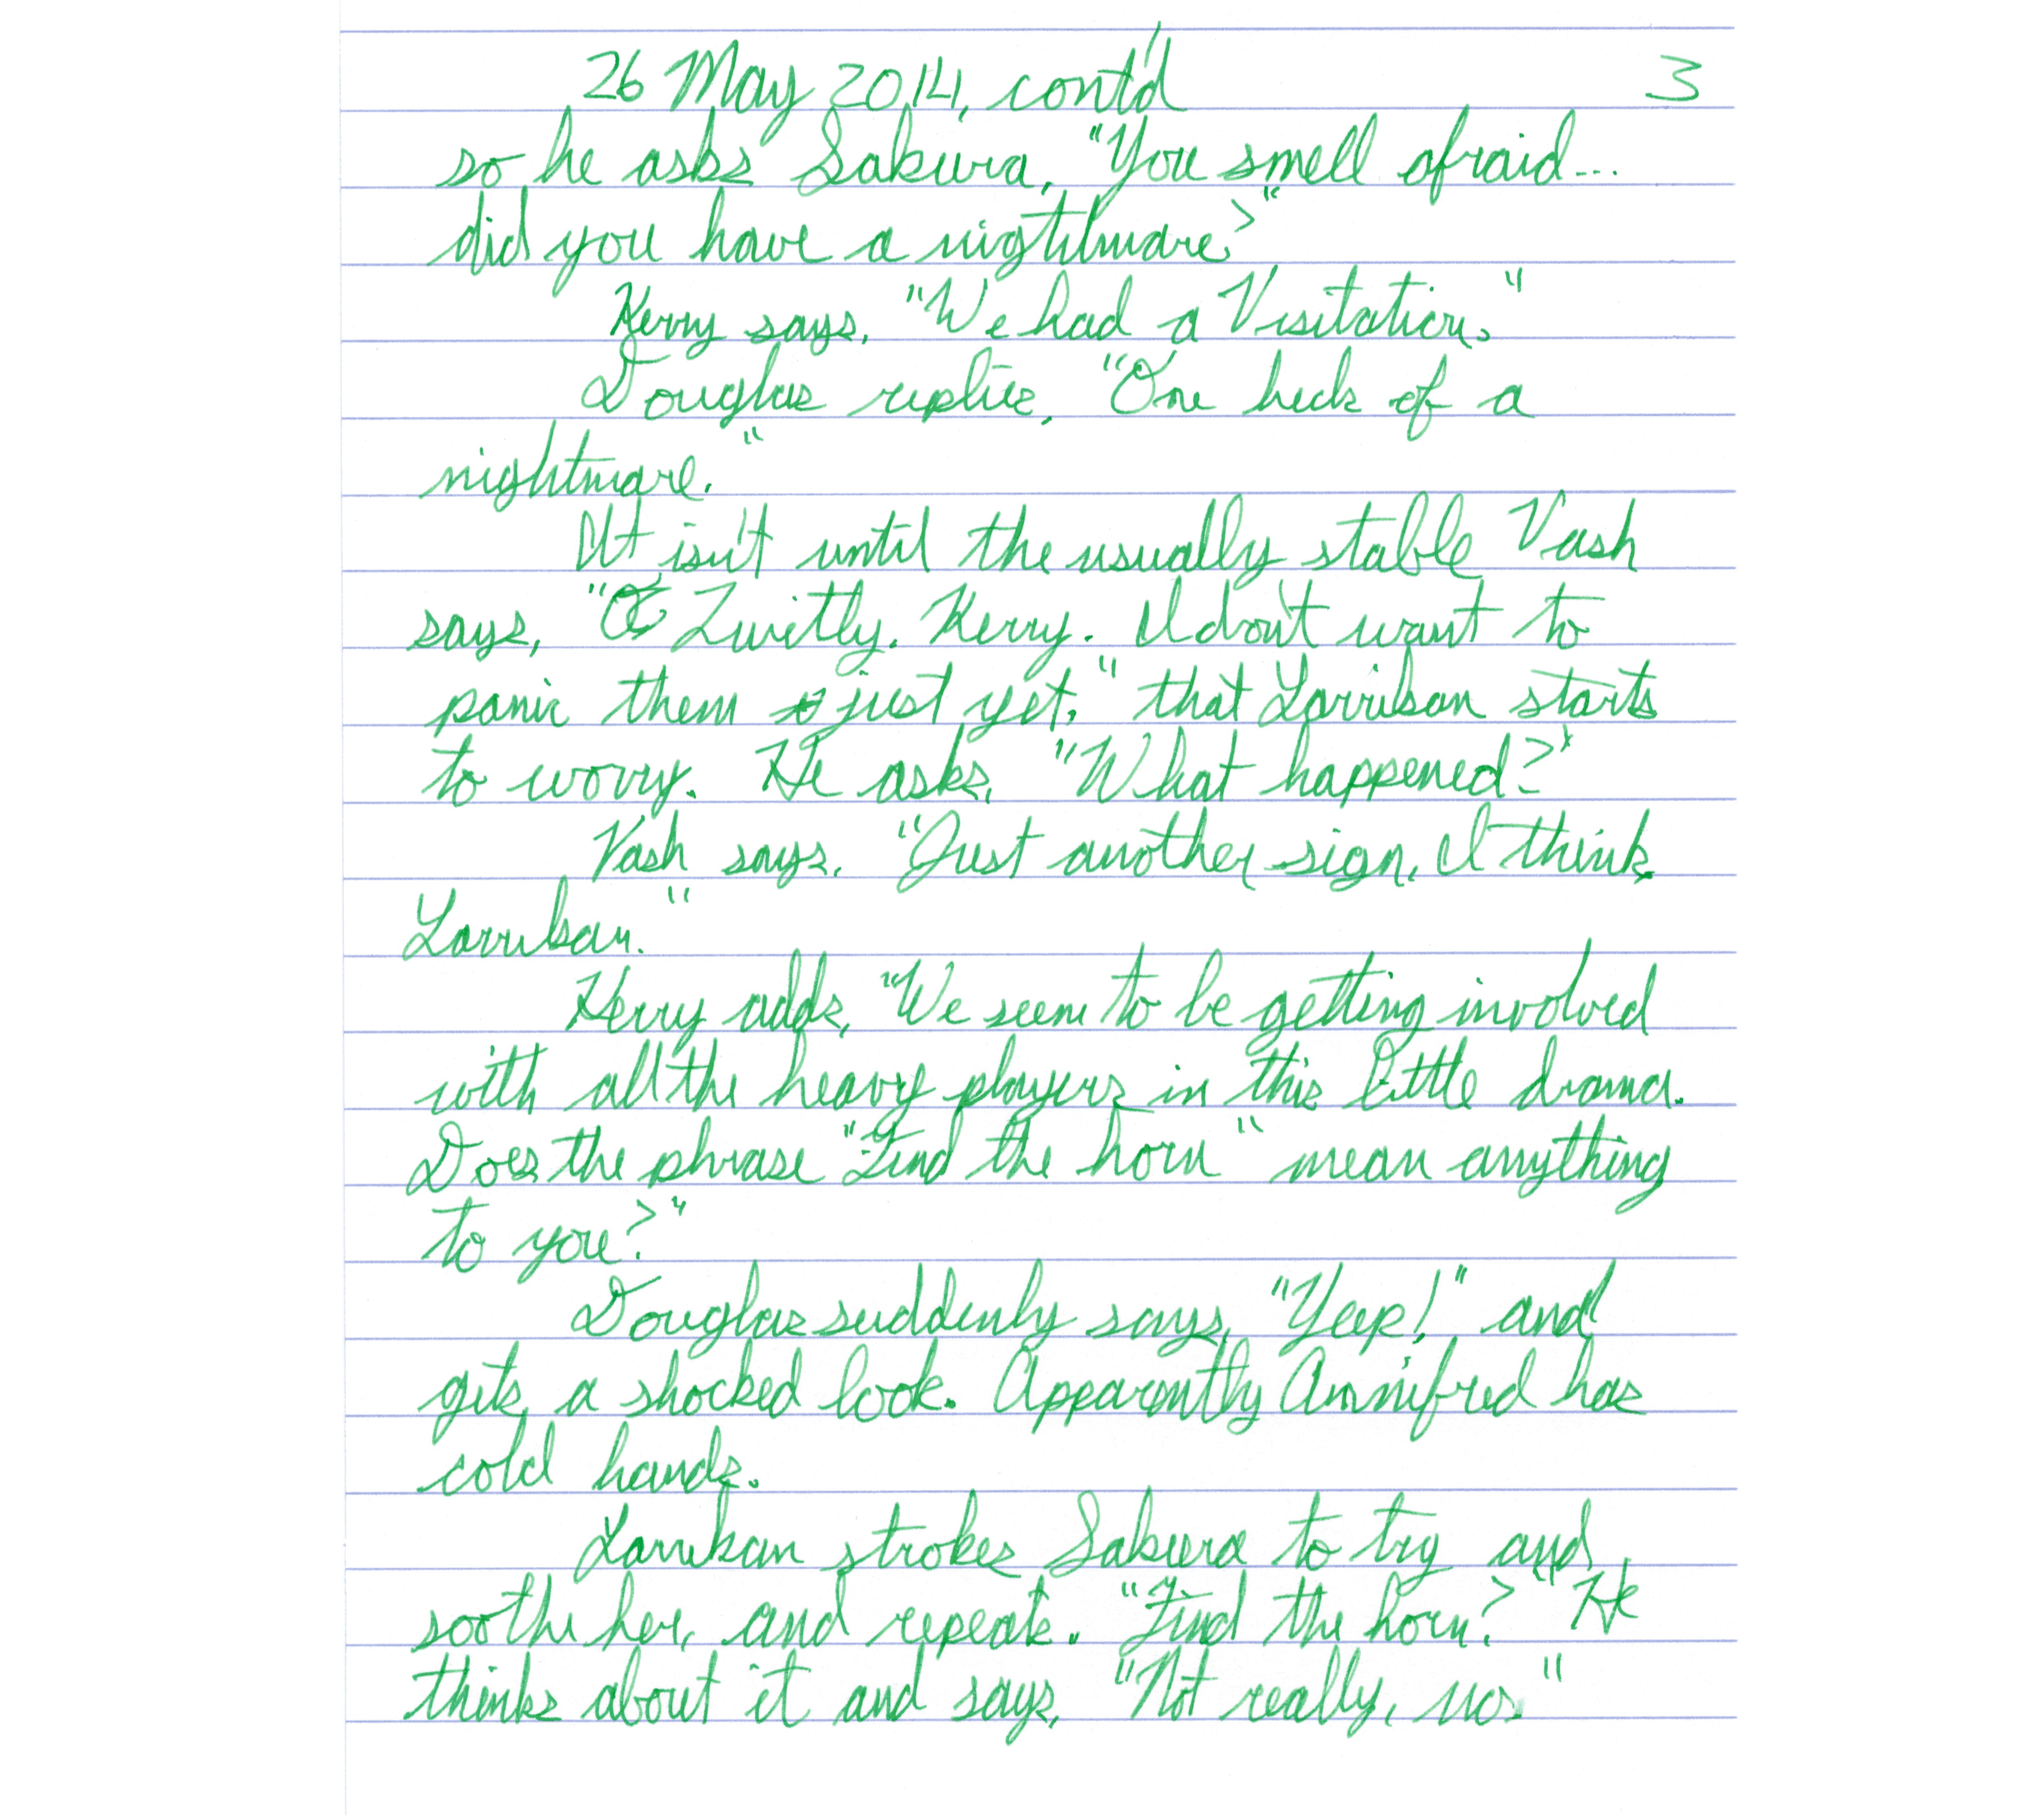 26 May 2014, cont'd 3
so he asks Sakura, "You smell afraid...
did you have a nightmare?"
Kerry says, "We had a Visitation."
Douglas replies, "One heck of a
nightmare."
It isn't until the usually stable Vash
says, "Quietly, Kerry. I don't want to
panic them just yet," that Larrikan starts
to worry. He asks, "What happened?"
Vash says, "Just another sign, I think
Larrikan."
Kerry adds, "We seem to be getting involved
with all the heavy players in this little drama.
Does the phrase "Find the horn" mean anything
to you?"
Douglas suddenly says, "Yeep!" and
gets a shocked look. Apparently Annifred has
cold hands.
Larrikan strokes Sakura to try and
soothe her, and repeats, "Find the horn?" He
thinks about it and says, "Not really, no."